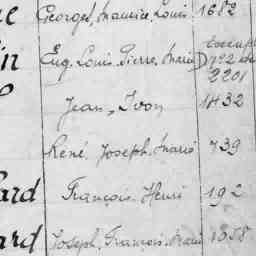 Georges, Maurice, Louis 1682
in Eug. Louis Pierre Marie
2201
Jean, Yvon 1432
René Joseph Marie 739
ard François Henri 192
ard Joseph, François Marie 1858